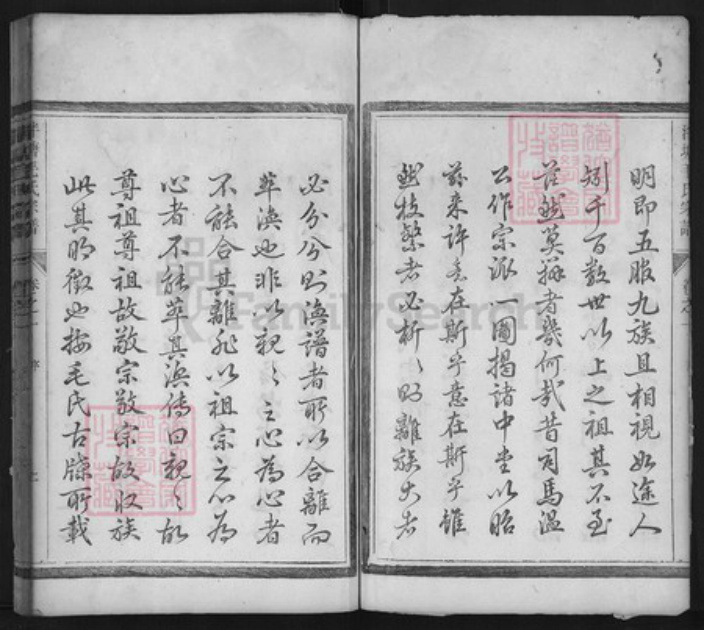 明即五服九族且相視如途人
矧千百数世以上之祖其不至
茫然莫辨者幾何哉昔司馬温
公作宗派一圖揭諸中堂以昭
茲来許意在斯乎意在斯乎雖
然枝繁者必析析则離族大者
必分分则渙譜者所以合離而
萃渙也非以親親之心為心者
不能合其離非以祖宗之心為
心者不能萃其渙傳曰親親故
尊祖尊祖故敬宗敬宗故收族
此其明徵也按毛氏古牒所載
毛氏宗譜
卷之一
序
FamilySearch